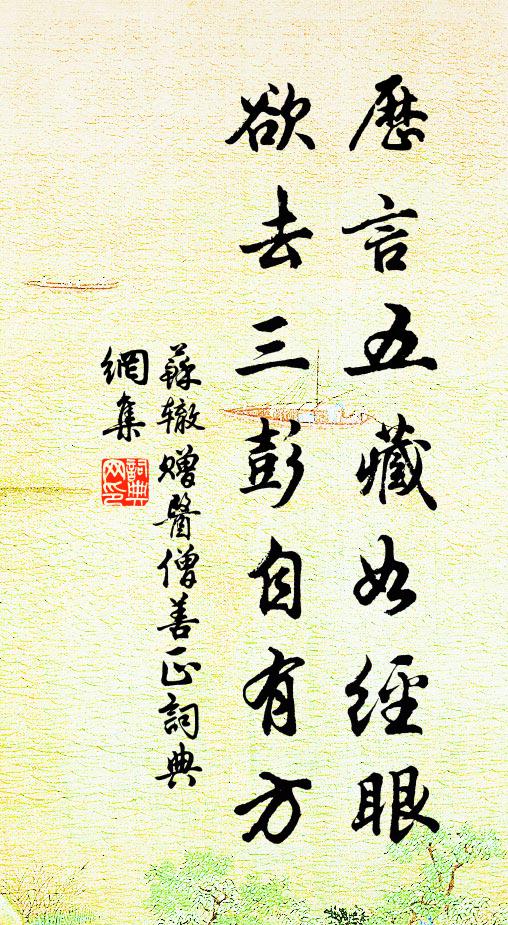 歷言五藏如經眼
欲去三彭自有方
蘇轍贈醫僧善正詞典
網集
詞典
网印